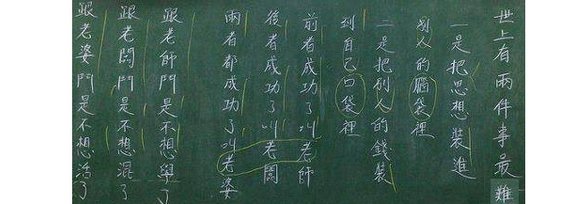 世上有兩件事最難
一是把思想裝進
別人的腦袋裡
二是把別人的錢裝
到自己口袋裡
前者成功了叫老師
後者成功了叫老闆
兩者都成功了叫老婆
跟老師鬥是不想學了
跟老闆鬥是不想混了
跟老婆鬥是不想活了